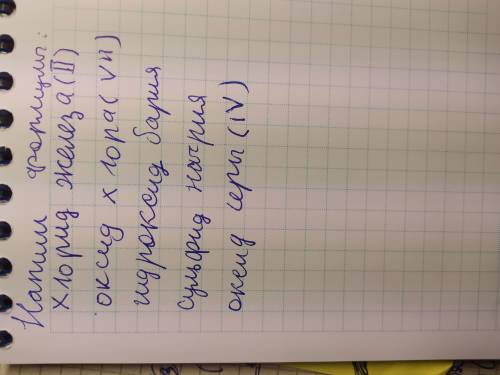 Напиши формулы:
хлорид железа (II)
оксид хлора (VII)
гидроксид бария
сульфид натрия
оксид серы (IV)